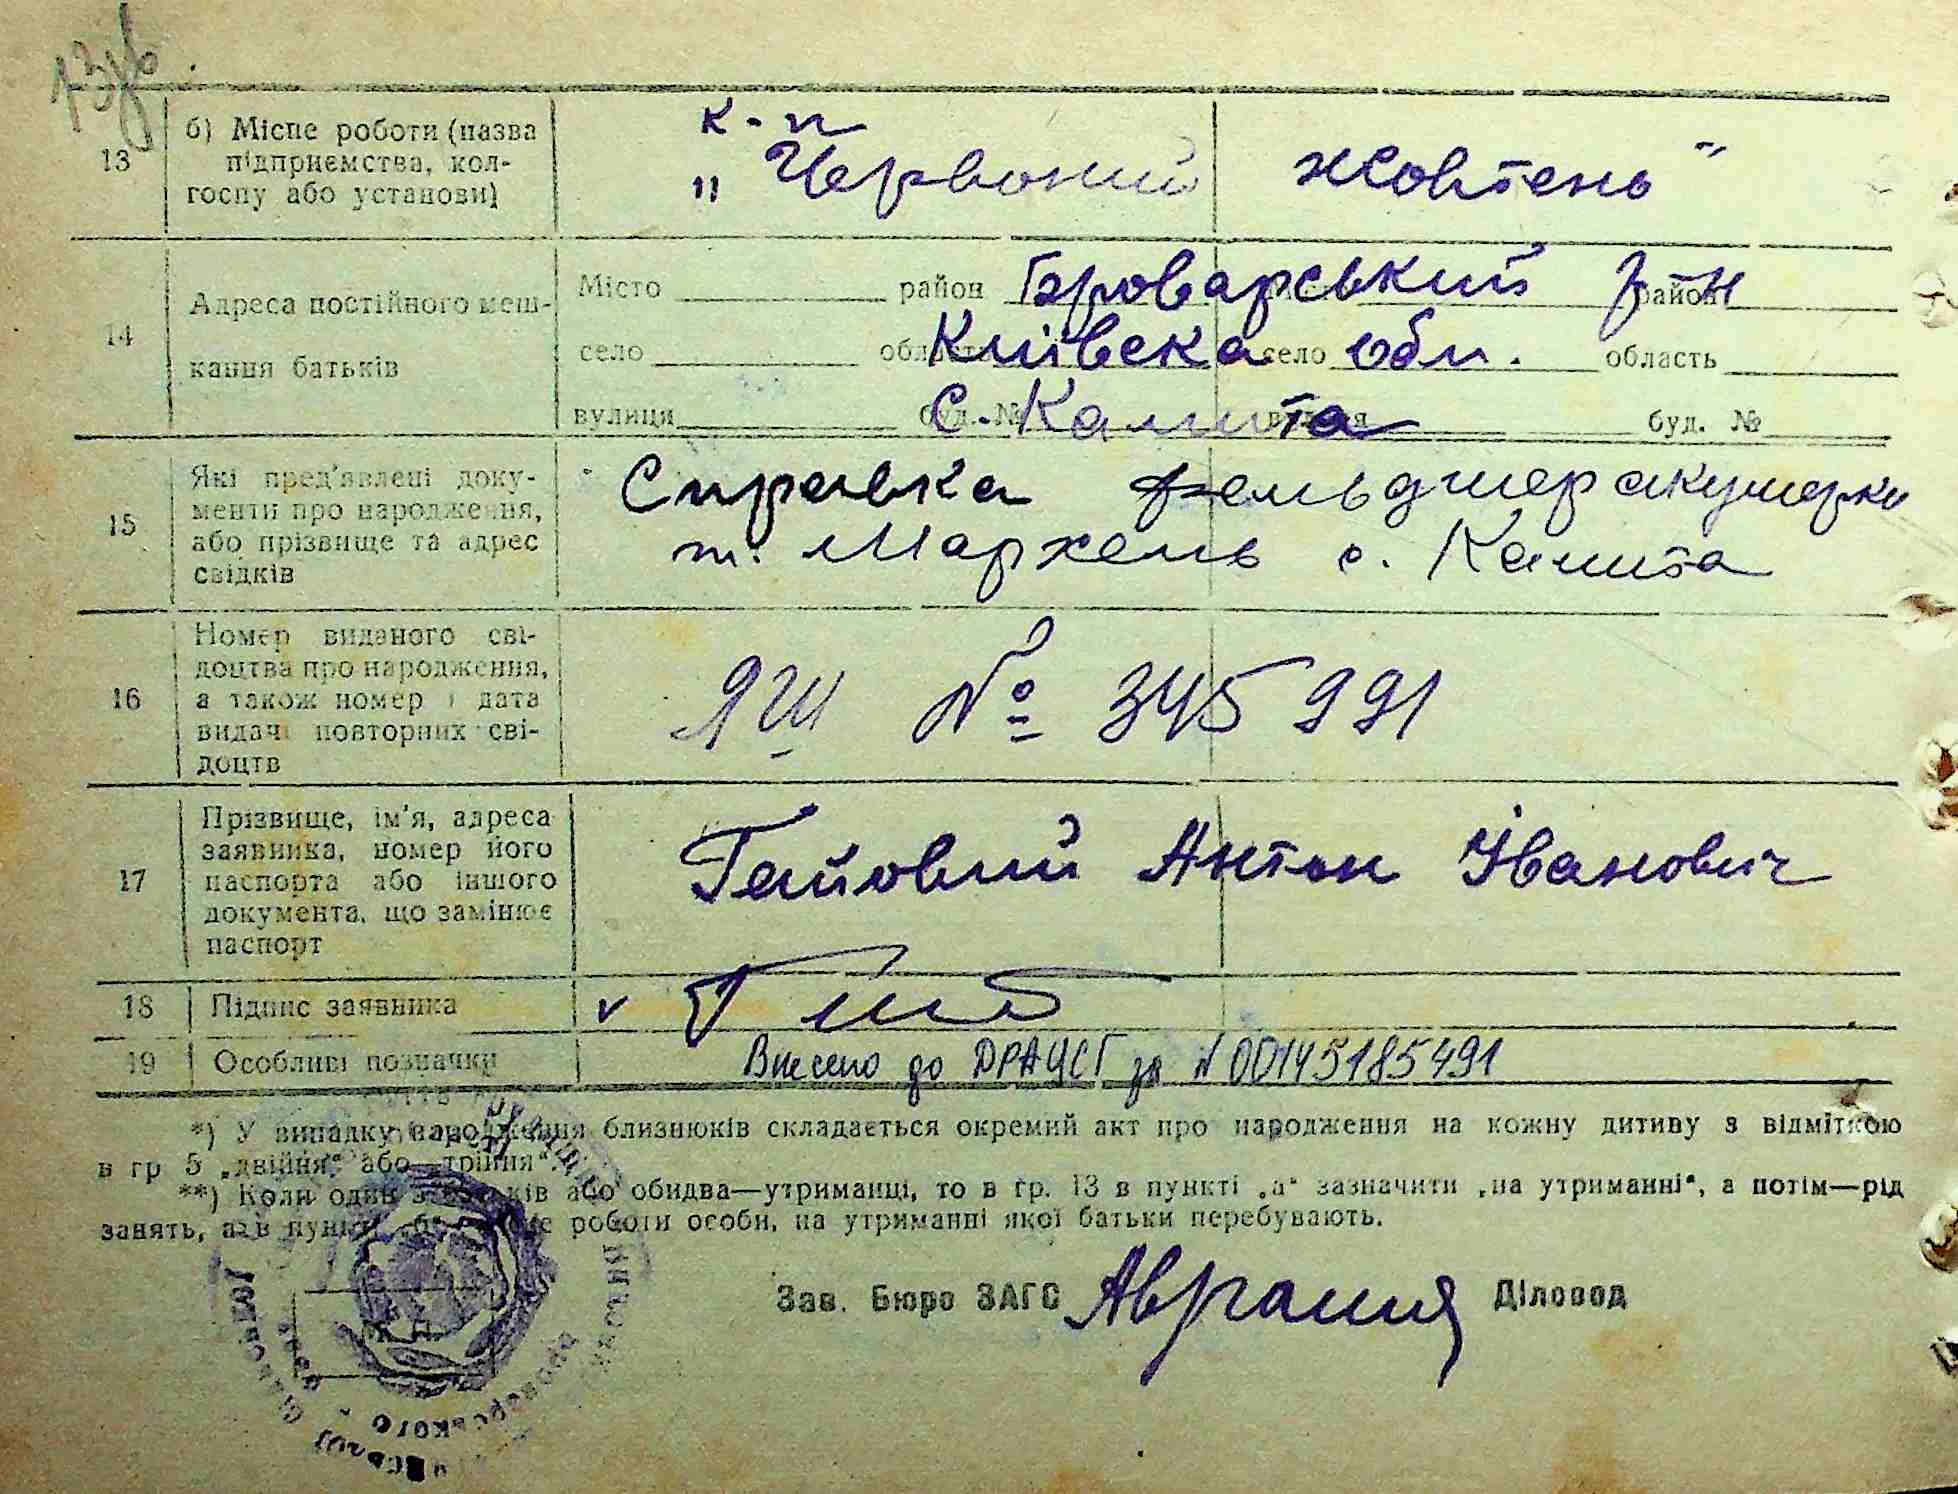 13 б) Місце роботи (назва підприємства, кол-
госпу або установи)
к-п
„Червоний Жовтень"
14 Адреса постійного меш-
кання батьків
Місто район Броварський район р-н
село область Київска село обл. область
вулиця буд. № с. Калита вулиця буд. №
15 Які пред'явлені доку-
менти про народження,
або прізвище та адрес
свідків
Справка фельдшер акушерки
т. Мархель с. Калита
16 Номер виданого сві-
доцтва про народження,
а також номер і дата
видачі повторних сві-
доцтв
ЯШ № 345991
17 Прізвище, ім'я, адреса
заявника, номер його
паспорта або іншого
документа, що замінює
паспорт
Гайовий Антон Іванович
18 Підпис заявника v
19 Особливі позначки Внесено до ДРАЦСГ за N 00145185491
*) У випадку народження близнюків складається окремий акт про народження на кожну дитину з відміткою
в гр 5 „двійня" або „трійня".
**) Коли один з батьків або обидва—утриманці, то в гр. 13 в пункті „а" зазначити „на утриманні", а потім—рід
занять, а в пункті „б" місце роботи особи, на утриманні якої батьки перебувають.
Зав. Бюро ЗАГС Діловод
М. П.